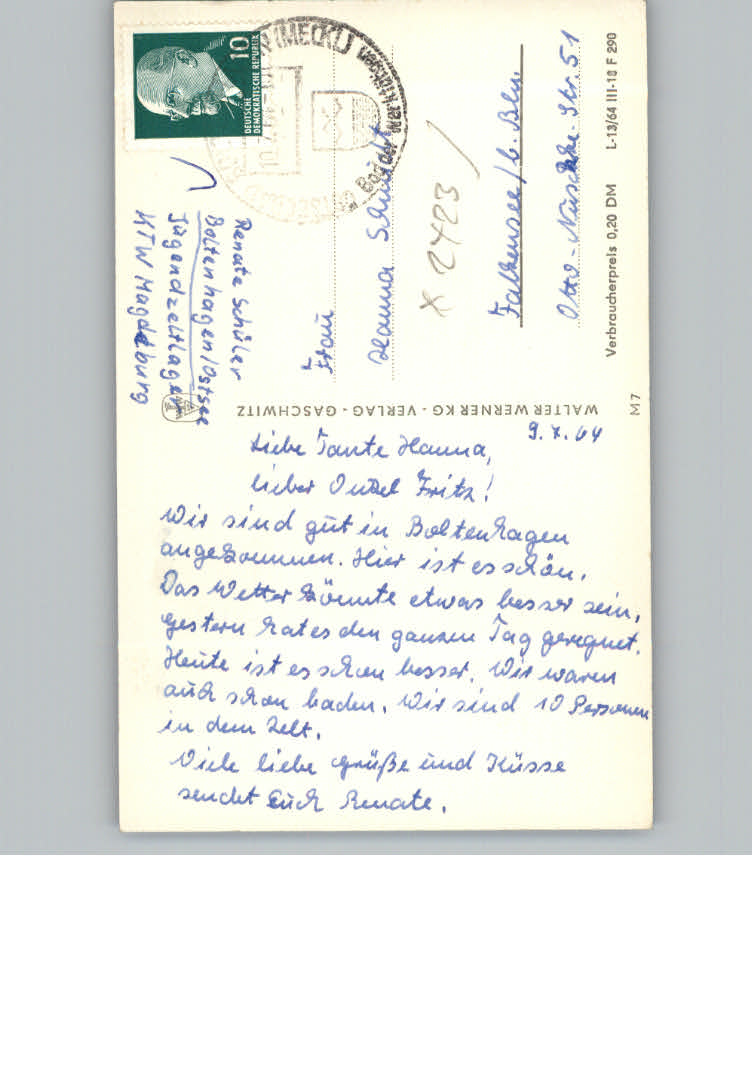 10
DEUTSCHE
DEMOKRATISCHE REPUBLIK
(MECKL)
Bad der Werktätigen
Renate Schüler
Boltenhagen/Ostsee
Jugendzeltlager
KTW Magdeburg
Frau
Hanna Schmidt
X 2423
Falkensee/b. Bln.
Otto-Nuschke-Str. 51
Verbraucherpreis 0,20 DM
L-13/64 III-18 F 290
WALTER WERNER KG · VERLAG · GASCHWITZ
M 7
9.7.64
Liebe Tante Hanna,
lieber Onkel Fritz!
Wir sind gut in Boltenhagen
angekommen. Hier ist es schön.
Das Wetter könnte etwas besser sein,
gestern hat es den ganzen Tag geregnet.
Heute ist es schon besser. Wir waren
auch schon baden. Wir sind 10 Personen
in dem Zelt.
Viele liebe Grüße und Küsse
sendet Euch Renate.